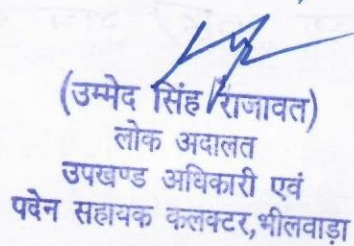 (उम्मेद सिंह राजावत)
लोक अदालत
उपखण्ड अधिकारी एवं
पदेन सहायक कलक्टर,भीलवाड़ा